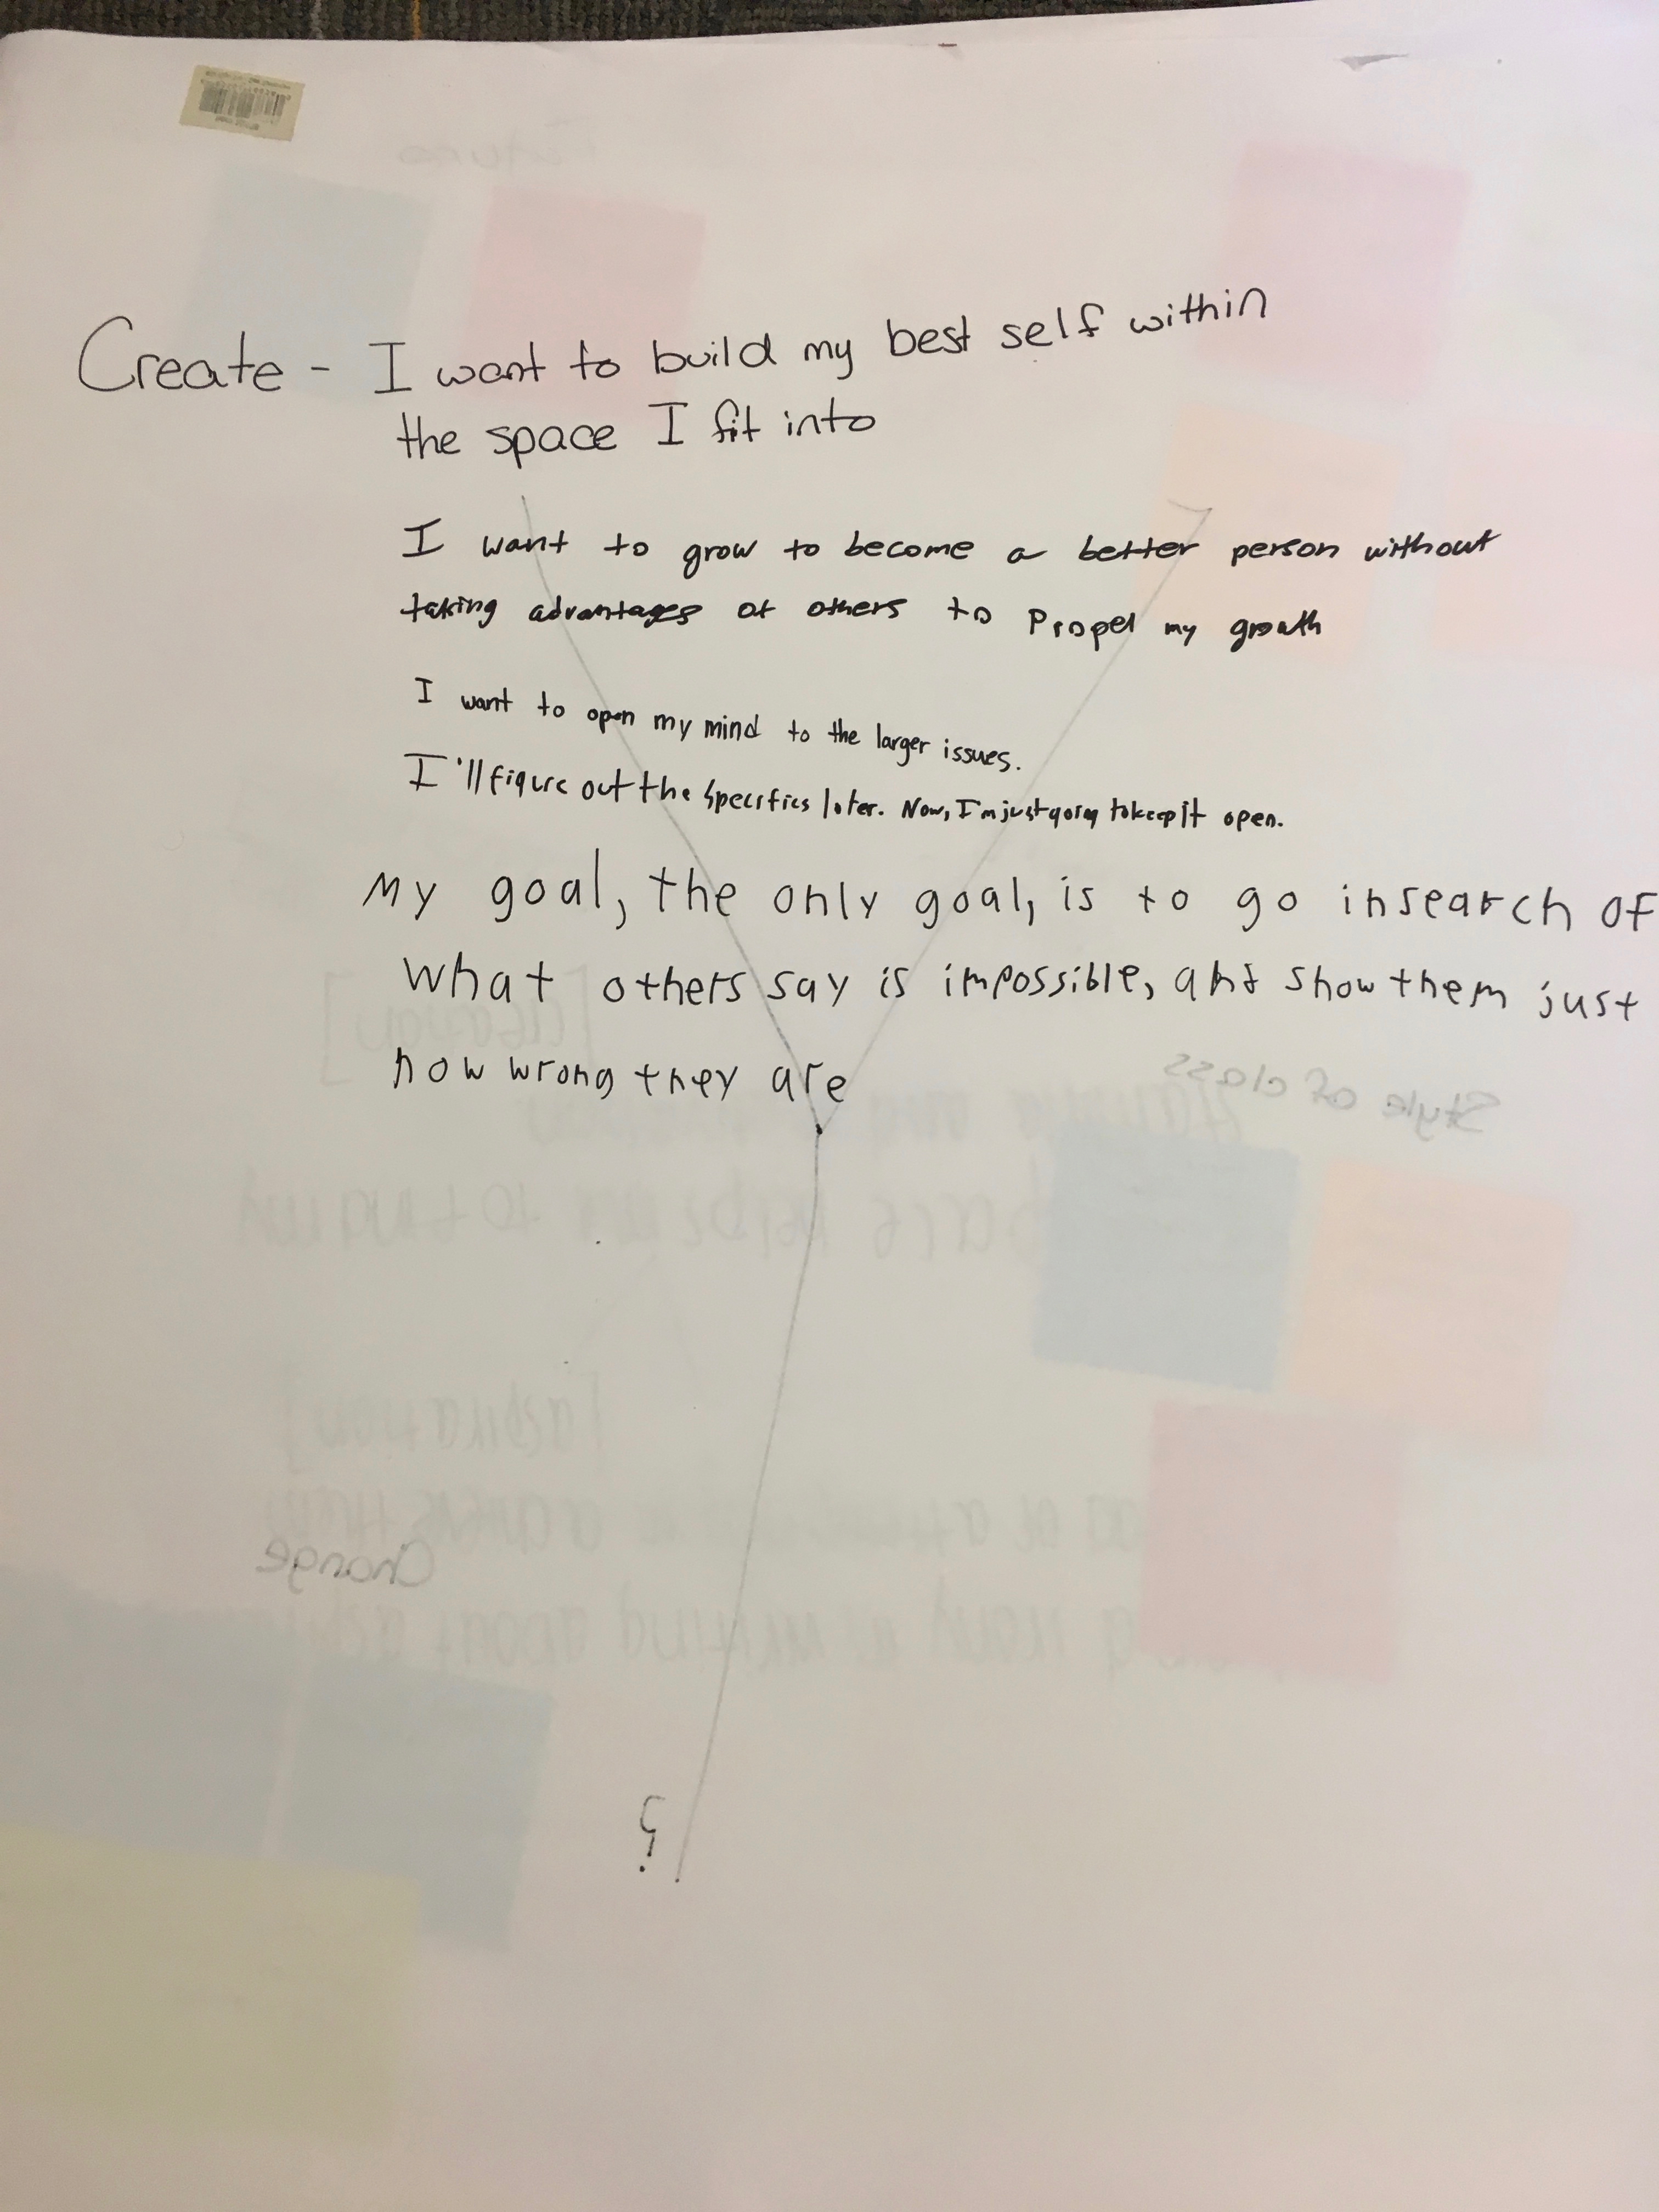 Create - I want to build my best self within
the space I fit into
I want to grow to become a better person without
taking advantages of others to Propel my growth
I want to open my mind to the larger issues.
I'll figure out the specifics later. Now, I'm just going to keep it open.
My goal, the only goal, is to go in search of
what others say is impossible, and show them just
how wrong they are
Style of class
[creation]
[aspiration]
Change
?